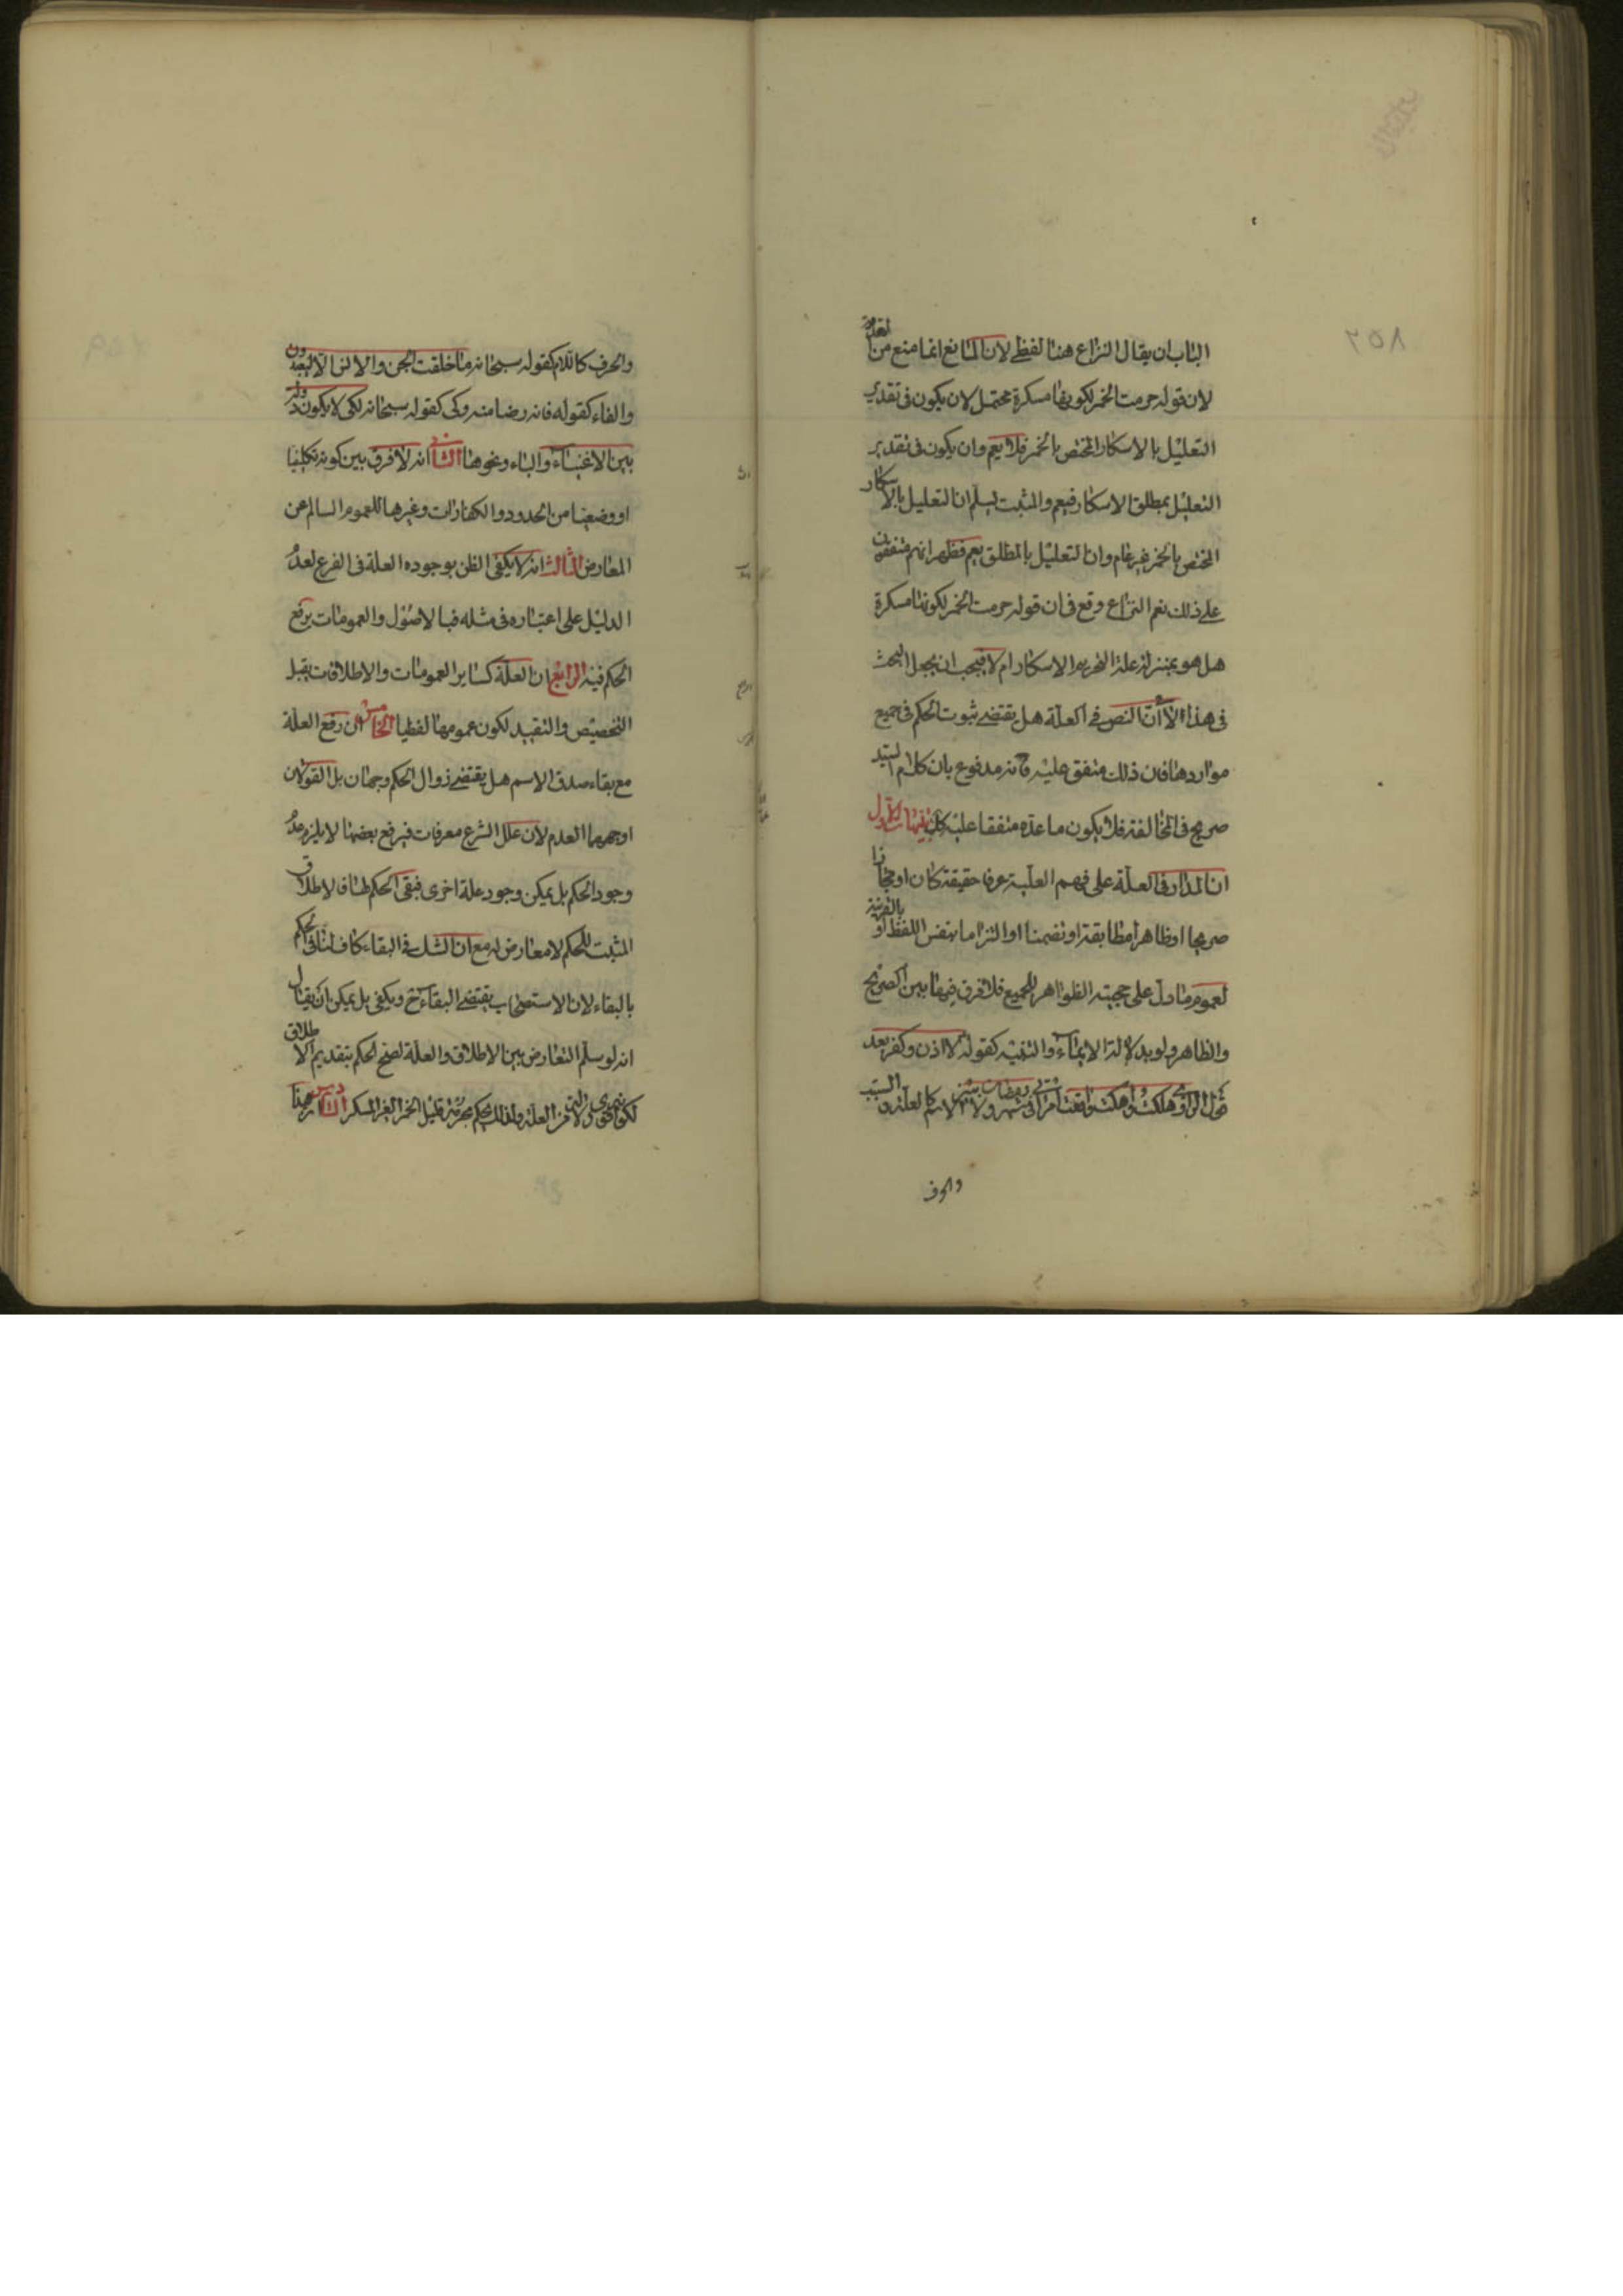 ٢٥٨
الباب ان يقال النزاع هنا لفظى لان المانع انما منع من التعدية
لان قوله حرمت الخمر لكونها مسكرة محتمل لان يكون فى تقدير
التعليل بالاسكار المختص بالخمر فلا يعم وان يكون فى تقدير
التعليل بمطلق الاسكار فيعم والمثبت يسلم ان التعليل بالاسكار
المختص بالخمر غير عام وان التعليل بالمطلق يعم فظهر انهم متفقون
على ذلك نعم النزاع وقع فى ان قوله حرمت الخمر لكونها مسكرة
هل هو بمنزلة علة التحريم الاسكار ام لا فيجب ان يجعل البحث
فى هذا لا ان النص فى العلة هل يقتضى ثبوت الحكم فى جميع
مواردها فان ذلك متفق عليه فانه مدفوع بان كلام السيد
صريح فى المخالفة فلا يكون ما عده متفقا عليه كك تنبيهات الاول
ان المدار فى العلة على فهم العلية عرفا حقيقة كان او مجازا
صريحا او ظاهرا مطابقة او تضمنا او التزاما بنفس اللفظ او بالقرينة
لعموم ما دل على حجية الظواهر للجميع فلا فرق فيها بين الصريح
والظاهر ولو بدلالة الايماء والتنبيه كقوله لا اذن وكفر بعد
قول الراوى هلكت واهلكت واقعت امراتى فى شهر رمضان ولا بين الاسم كالعلة والسبب
والحرف
والحرف كاللام كقوله سبحانه ما خلقت الجن والانس الا ليعبدون
والفاء كقوله فانه رضا منه وكى كقوله سبحانه لكى لا يكون دولة
بين الاغنياء والباء ونحوها الثانى انه لا فرق بين كونه تكليفيا
او وضعيا من الحدود والكفارات وغيرها للعموم السالم عن
المعارض الثالث انه لا يكفى الظن بوجوده العلة فى الفرع لعدم
الدليل على اعتباره فى مثله فبالاصول والعمومات يرفع
الحكم فيه الرابع ان العلة كساير العمومات والاطلاقات يقبل
التخصيص والتقييد لكون عمومها لفظيا الخامس ان رفع العلة
مع بقاء صدق الاسم هل يقتضى زوال الحكم وجهان بل القولان
اوجههما العدم لان علل الشرع معرفات فبرفع بعضها لا يلزم عدم
وجود الحكم بل يمكن وجود علة اخرى فبقى الحكم فالاطلاق
المثبت للحكم لا معارض له مع ان الشك فى البقاء كاف لنا فى الحكم
بالبقاء لان الاستصحاب يقتضى البقاء ح ويكفى بل يمكن ان يقال
انه لو سلم التعارض بين الاطلاق والعلة لصح الحكم بتقديم الاطلاق
لكونه اقوى دلالة من العلة ولذلك يحكم بحرمة قليل الخمر الغير المسكر السادس هنا